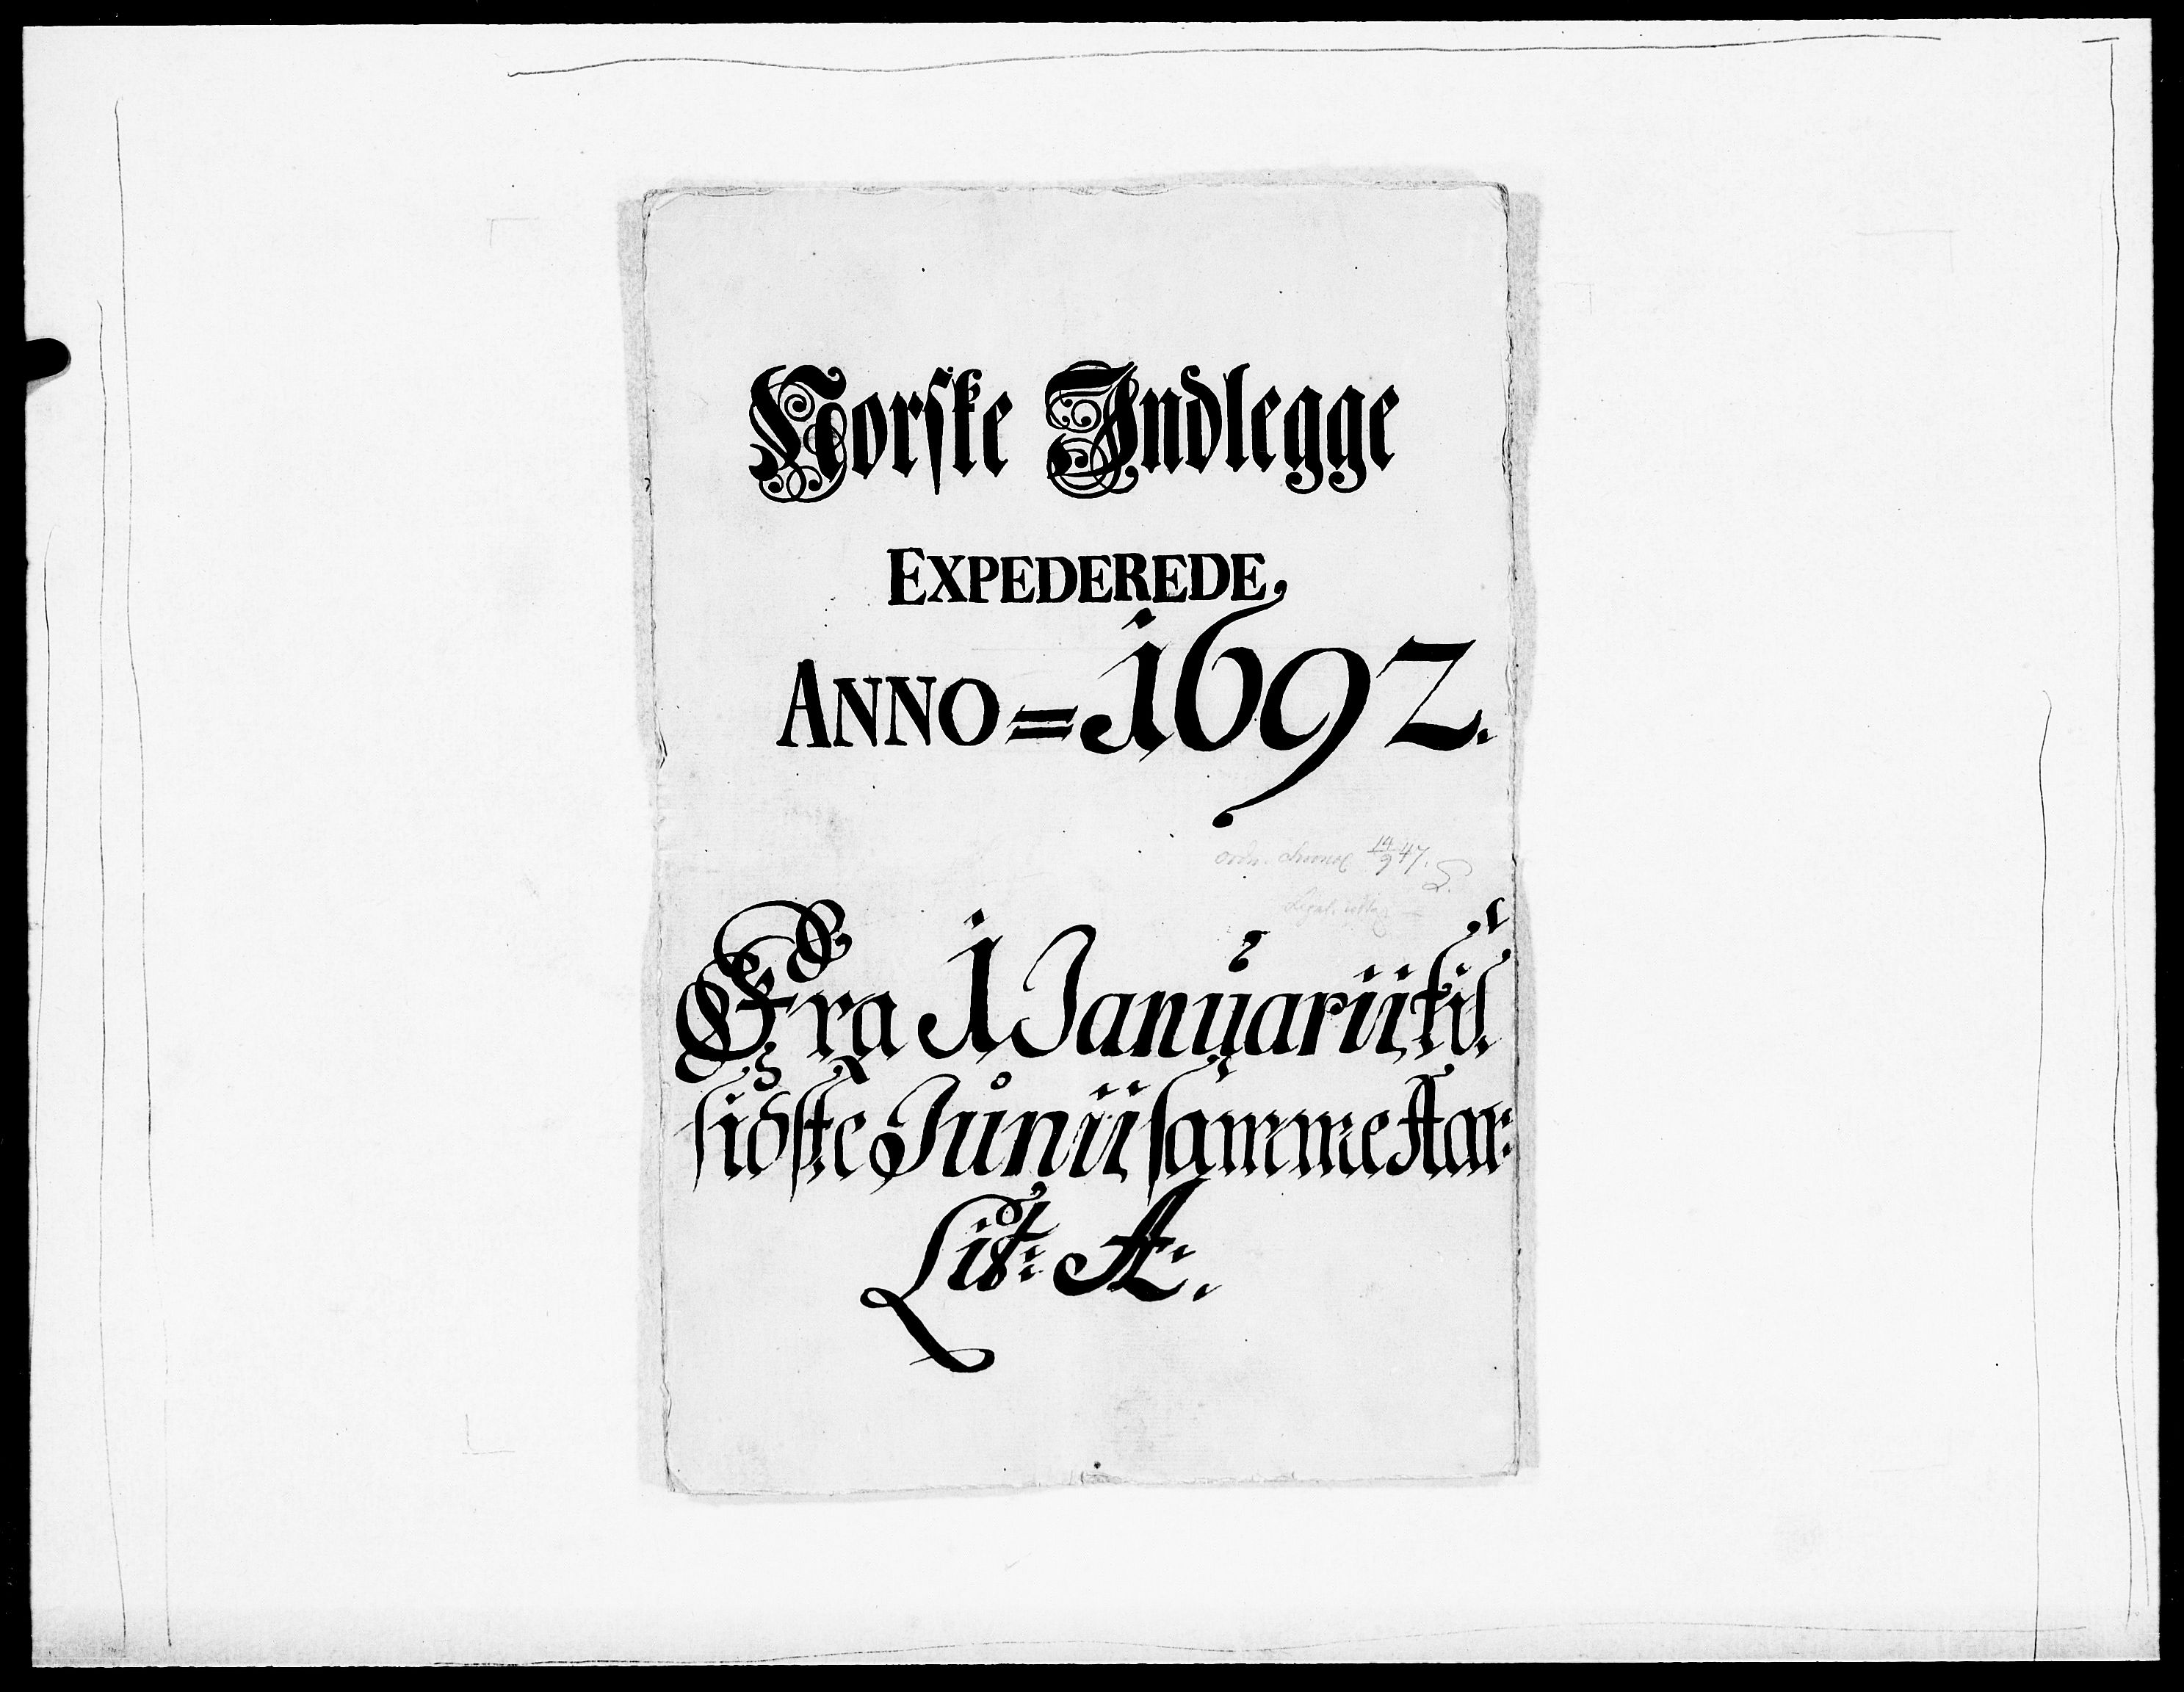 Norske Indlegge
EXPEDEREDE,
ANNO = 1692.
ordn. chronol 14/9 47.
Fra 1 Januarii til
sidste Junii samme Aar:
Lit: A: